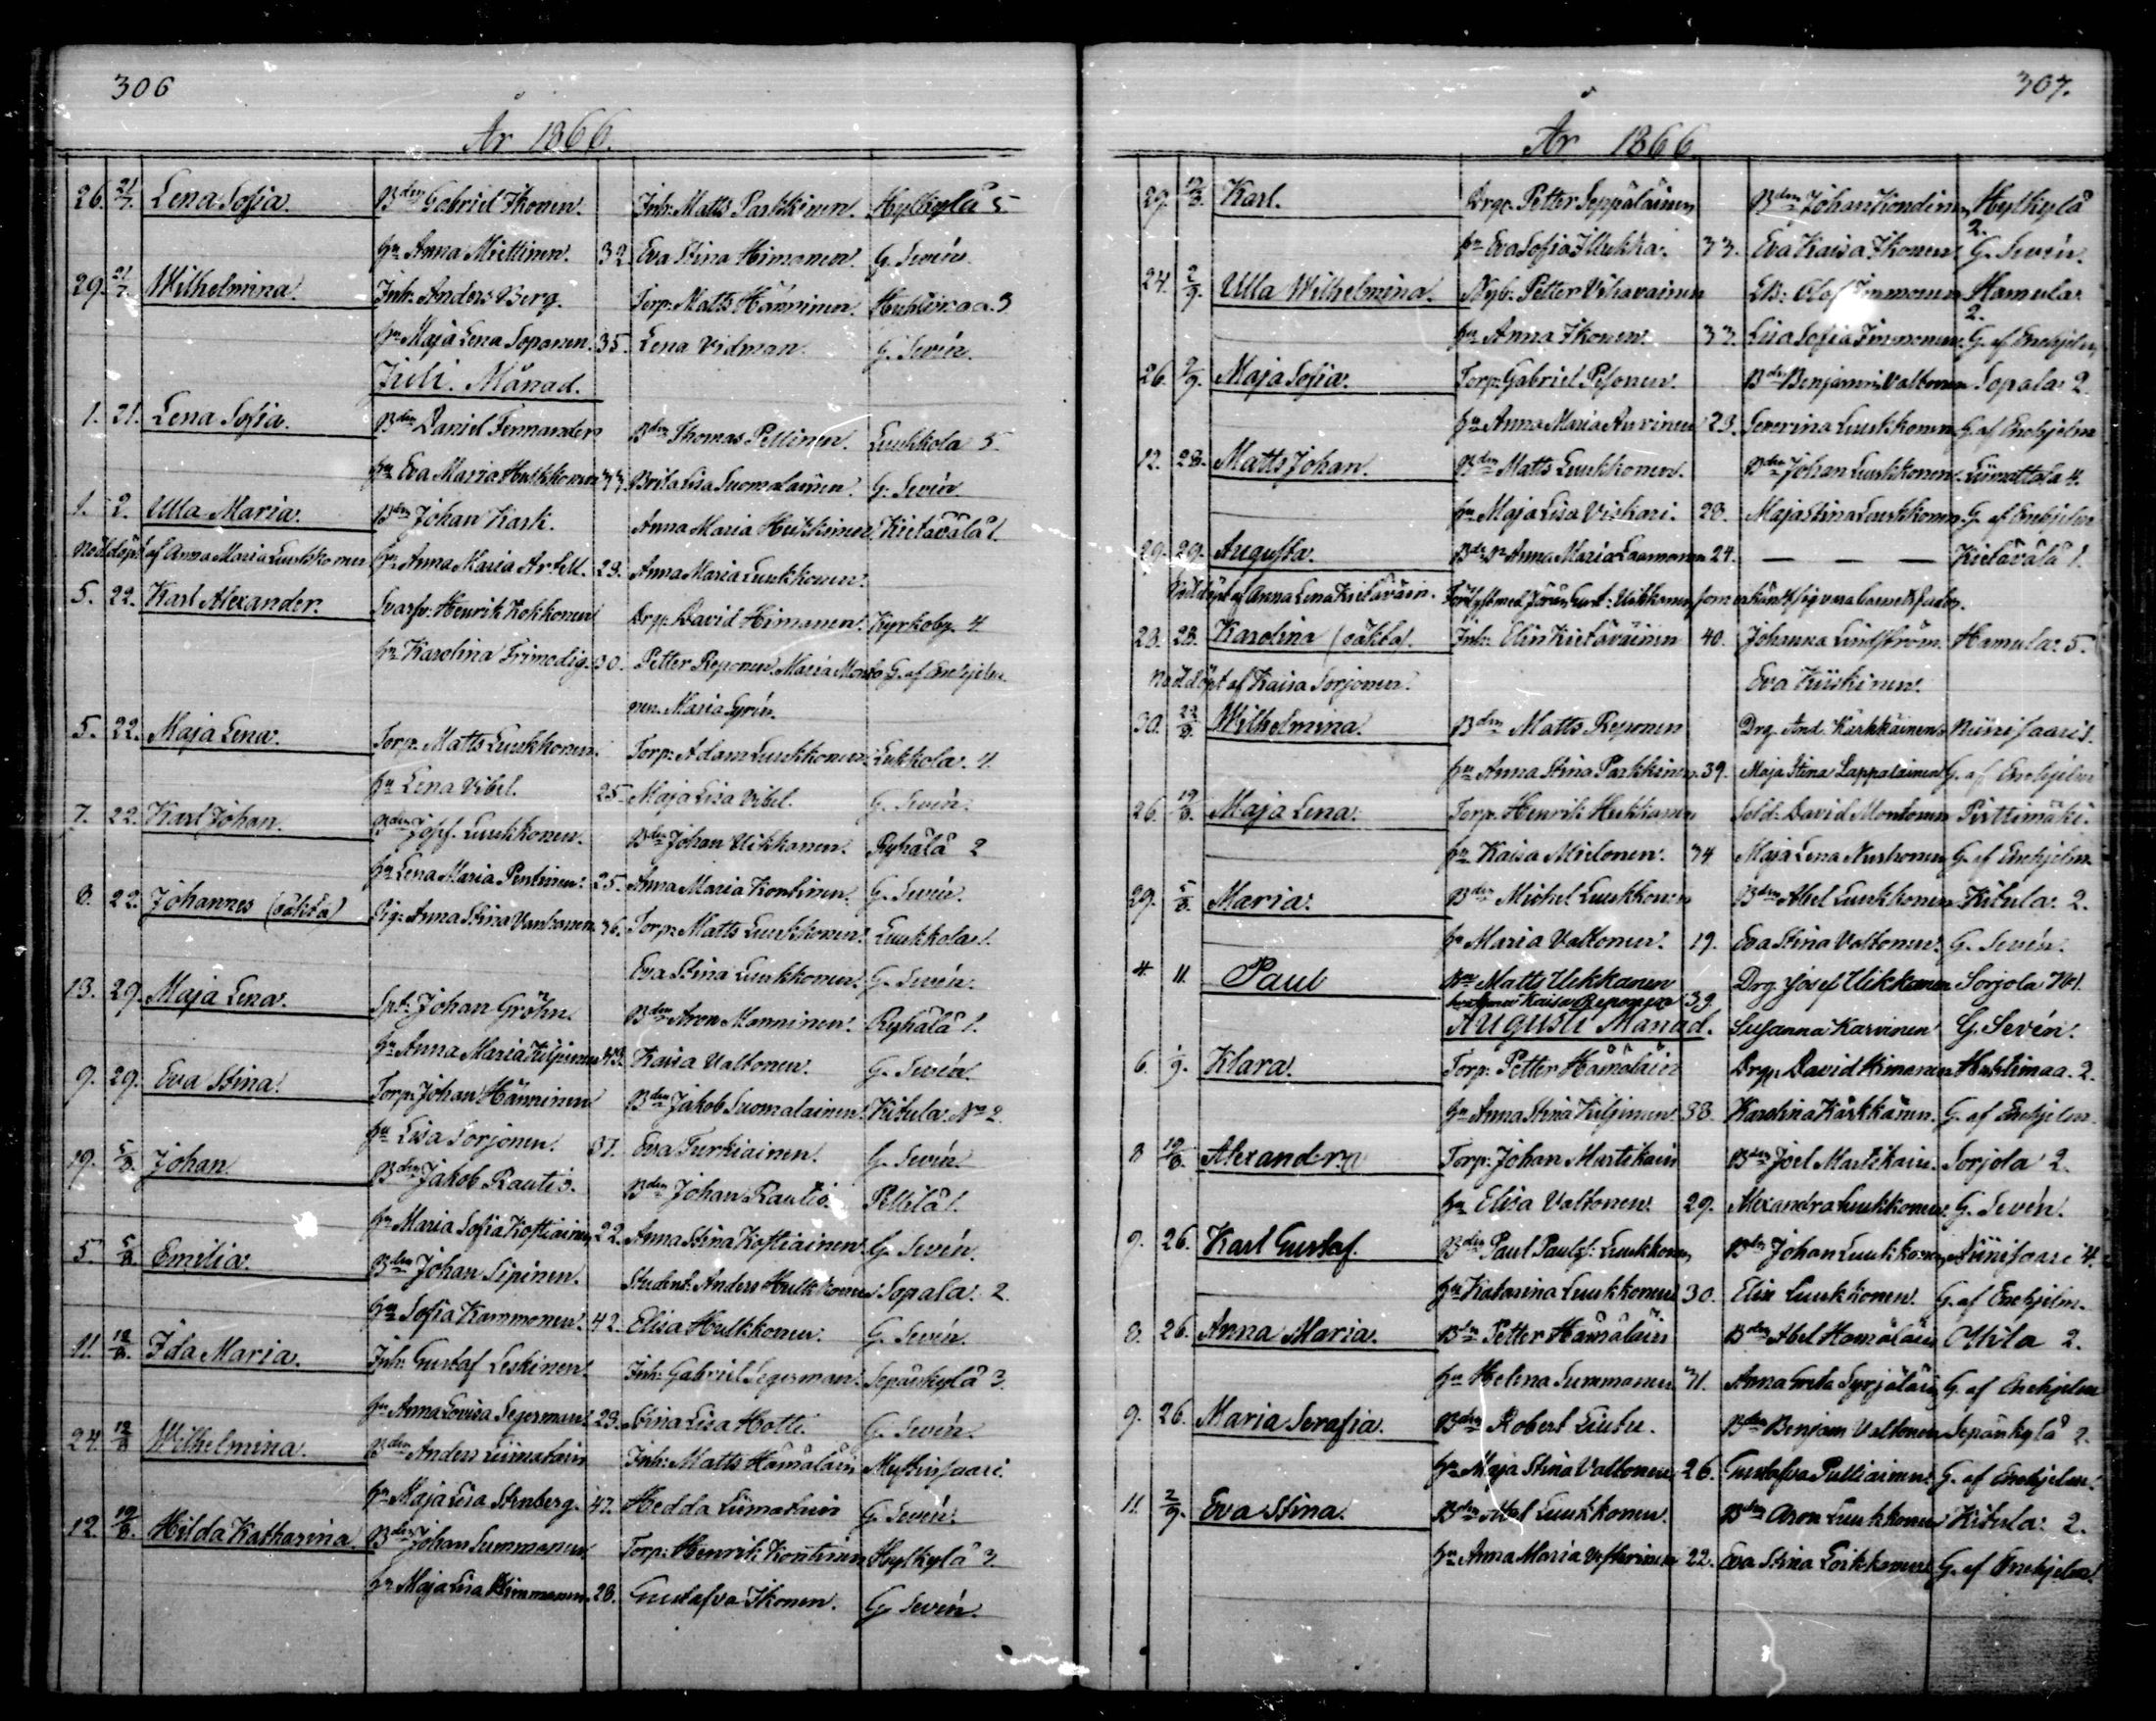 306
År 1866.
26. 21/7. Lena Sofia. Bdn Gabriel Ikonen. Inh: Matts Parkkinen. Hytkylä 5
hu Anna Miettinen. 32 Eva Stina Himanen. G. Sevén.
29. 21/7. Wilhelmina. Inh: Anders Berg. Torp: Matts Hänninen. Huhtimaa. 3
hu Maja Lena Sopanen. 35. Lena Vidman. G. Sevén.
Juli. Månad.
1. 21. Lena Sofia. Bdn Daniel Fernander Bdn Thomas Peltinen. Luukkola 5.
hu Eva Maria Hulkkonen 33 Brita Lisa Suomalainen. G. Sevén.
1. 2. Ulla Maria. Bdn Johan Karli. Anna Maria Heikkinen Kietävälä 1.
Nöddöpt af Anna Maria Luukkonen hu Anna Maria Artell. 23. Anna Maria Luukkonen.
5. 22. Karl Alexander. Svarfv: Henrik Kokkonen Drg: David Himanen. Kyrkoby. 4
hu Karolina Frimodig. 30. Petter Reponen. Maria Monto G. af Enehjelm.
nen. Maria Syrén.
5. 22. Maja Lena. Torp: Matts Luukkonen. Torp: Adam Luukkonen Lukkola. 4.
hu Lena Vibel. 25. Maja Lisa Vibel. G. Sevén.
7. 22. Karl Johan. Bdn Josef. Luukkonen. Bdn Johan Uikkanen. Ryhälä 2
hu Lena Maria Penttinen. 25. Anna Maria Kontinen. G. Sevén.
8. 22. Johannes (oäkta) Pig: Anna Stina Vanhanen. 36. Torp: Matts Luukkonen. Luukkola 1.
Eva Stina Luukkonen. G. Sevén.
13. 29. Maja Lena. Spt: Johan Gröhn. Bdn Aron Manninen. Ryhälä 1.
hu Anna Maria Kilpinen 43. Kaisa Valtonen. G. Sevén.
9. 29. Eva Stina. Torp: Johan Hänninen Bdn Jakob Suomalainen. Kitula No 2.
hu Lisa Sorjonen. 37. Eva Turkiainen. G. Sevén.
19. 5/8. Johan Bdn Jakob Rautio. Bdn Johan Rautio. Pellilä 1.
hu Maria Sofia Kostiainen 22. Anna Stina Kostiainen. G. Sevén.
5. 5/8. Emilia. Bdn Johan Sipinen. Student: Anders Hulkkonen Sopala. 2.
hu Sofia Kammonen. 42. Elisa Hulkkonen. G. Sevén.
11. 12/8. Ida Maria. Inh: Gustaf Leskinen. Inh: Gabriel Segerman. Sepänkylä 3.
hu Anna Lovisa Segerman. 23. Stina Lisa Hotti. G. Sevén.
24. 12/8 Wilhelmina. Bdn Anders Liimatain Inh: Matts Hämäläin
hu Maja Lisa Stenberg. 42. Hedda Liimatain G. Sevén.
12. 19/8. Hilda Katharina. Bdn Johan Summanen Torp: Henrik Kontinen Hytkylä 3
hu Maja Lisa 28. Gustafva Ikonen. G. Sevén.
307.
År 1866
29. 12/8. Karl. Drg: Petter Seppäläinen Bdn Johan Kondinen Hytkylä 2.
hu Eva Sofia Illukka. 33. Eva Kaisa Ikonen G. Sevén.
24. 2/9. Ulla Wilhelmina. Nyb: Petter Vihavainen Olof Immonen Hamula. 2.
hu Anna Ikonen. 33. Lisa Sofia Immonen. G. af Enehjelm
26. 9/9. Maja Sofia. Torp: Gabriel Pesonen. Bdn Benjamin Valtonen Sopala. 2.
hu Anna Maria Auvinen 23. Severina Luukkonen G. af Enehjelm
12. 28. Matts Johan. Bdn Matts Luukkonen. Bdn Johan Luukkonen. Liimattala 4.
hu Maja Lisa Viskari. 28. Maja Stina Luukkonen G. af Enehjelm
29. 29. Augusta. Anna Maria Laamanen 24. — — — Kietävälä 1.
Nöddöpt af Anna Lena Kietäväin. Uikkanen som erkänt sig vara barnets fader.
28. 28. Karolina (oäkta). Inh: Elin Kietäväinen 40. Johanna Lindström. Hamula. 5.
Nöddöpt af Kaisa Sorjonen. Eva Kiiskinen.
30. Wilhelmina. Bdn Matts Reponen Drg. And. Kärkkäinen Niinisaari 1.
hu Anna Stina Parkkinen. 39. Maja Stina Lappalainen G. af Enehjelm
26. 19/8. Maja Lena. Torp: Henrik Heikkanen Sold: David Montonen Pirttimäki.
hu Kaisa Mielonen. 34 Maja Lena Nuikonen G. af Enehjelm
29. 5/8. Maria. Bdn Mickel Luukkonen Bdn Abel Luukkonen Kitula. 2.
hu Maria Valtonen. 19. Eva Stina Valtonen. G. Sevén.
4 11 Paul Bdn Matts Uikkanen Drg. Josef Uikkanen Sorjola No 1.
Kaisa Reponen 39.
Augusti Månad. Susanna Karvinen G. Sevén.
6. 1/9. Klara. Torp: Petter Hämäläin Drg: David Himanen Huhtimaa. 2.
hu Anna Stina Kilpinen 38. Karolina Kärkkäinen. G. af Enehjelm.
8 19/8. Alexandra Torp: Johan Martikain Bdn Joel Martikain. Sorjola 2.
hu Elisa Valtonen. 29. Alexandra Luukkonen. G. Sevén.
9. 26. Karl Gustaf. Bdn Paul Paulss: Luukkonen Bdn Johan Luukkonen Niinisaari 4.
hu Katarina Luukkonen 30. Elin Luukkonen. G. af Enehjelm.
8. 26. Anna Maria. Bdn Petter Hämäläin Bdn Abel Hämäläin Ollila 2.
hu Helena Summanen 31. Anna Greta Syrjäläin G. af Enehjelm
9. 26. Maria Serafia. Bdn Robert Liutu. Bdn Benjam Valtonen Sepänkylä 2.
hu Maja Stina Valtonen 26. Gustafva Pulliainen. G. af Enehjelm.
11. 2/9. Eva Stina. Bdn Abel Luukkonen. Bdn Aron Luukkonen Kitula. 2.
hu Anna Maria 22. Eva Stina Loikkanen G. af Enehjelm.